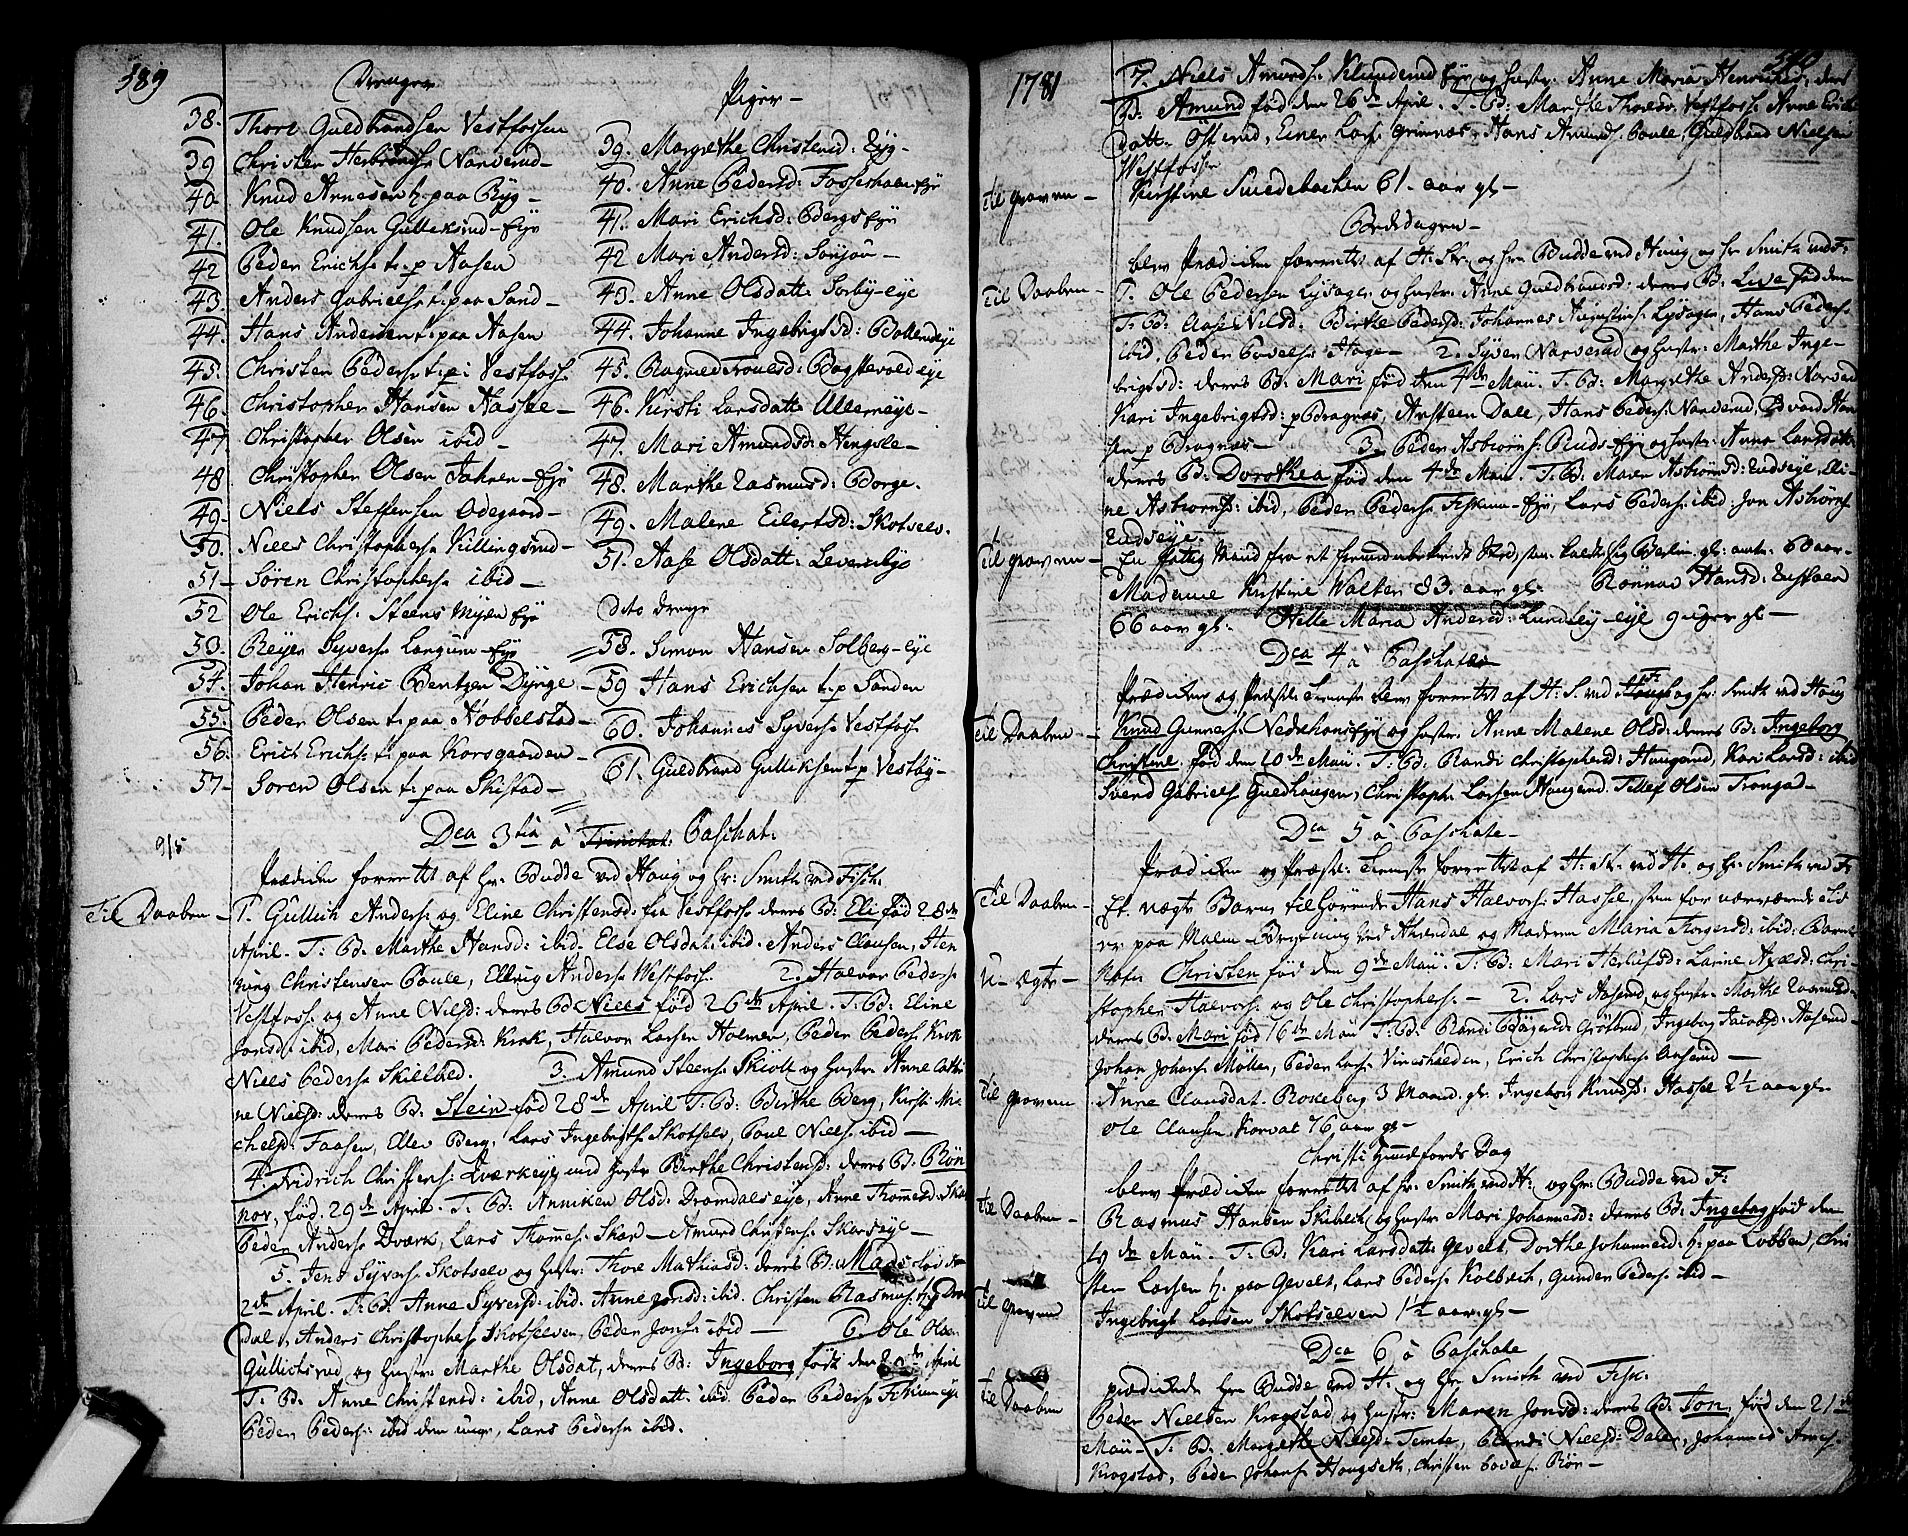 389
Drenger
38. Thore Guldbrandsen Vestfossen
39 Christen Herbrands: Narverud
40 Knud Arnesen t. paa Byg
41. Ole Knudsen Gulliksrud-Eye
42 Peder Erichs: t. p Aasen
43. Anders Gabriels: t. paa Sand
44. Hans Andersen t. paa Aasen
45. Christen Peders: t. p: i Vestfoss:
46. Christopher Hansen Hassel
47. Christopher Olsen ibid
48 Christopher Olsen Jahren-Eye
49. Niels Steffensen Ødegaard
50. Niels Christophers: Killingrud
51 Søren Christophers: ibid
52 Ole Erichs: Steens Myren Eye
53. Reyer Syvers: Langum-Eye
54. Johan Henric Bentzen Dynge
55. Peder Olsen t. paa Nobbelstad
56. Erich Erichs: t. paa Korsgaarden
57 Søren Olsen t. paa Skistad
Piger
39. Margrethe Christensd: Byg
40. Anne Pedersd: Fossesholm Eye
41. Mari Erichsd: Bergs Eye
42 Mari Andersd: Sonjou
43. Anne Olsdatt: Sorby-eye
44. Johanne Ingebrigtsd: Bollerudeye
45. Ragnild Troulsd: Bagstevold eye
46. Kirsti Larsdatt: Ullerneye
47. Mari Amundsd: Hengsle
48. Marthe Rasmusd: Borge.
49. Malene Eilertsd: Skotselv.
51. Aase Olsdatt: Leversbye
dito Drenge
58. Simon Hansen Solberg-eye
59 Hans Erichsen t. p Sanden
60. Johannes Syvers: Vestfoss:
61. Guldbrand Gulliksen t. p Vestby
9/5
Dca 3tia à Trinitat: Paschat:
Prædiken forrettet af Hr: Budde ved Houg og Hr: Smith ved Fisch:
Til Daaben
1. Gullich Anders: og Eline Christensd: fra Vestfoss: deres B: Eli fød 28de
April. T: B: Marthe Hansd: ibid. Else Olsdat: ibid: Anders Clausen, Hen
ning Christensen Poule, Ellrug Anders: Westfoss: 2. Halvor Peders:
Vestfoss: og Anne Nilsd: deres B Niels fød 26de April. T: B: Eline
Jonsd: ibid, Mari Pedersd: Krok, Halvor Larsen Holmen, Peder Peders: Krok
Niels Peders: Skillbed. 3 Amund Steens: Skiøll og Hustr: Anne Cathri
ne Nielsd: deres B: Stein fød 28de April T: B: Birthe Berg, Kirsti Mi
chelsd: Faasen, Ellev Berg, Lars Ingebrigts: Skotselv, Poul Niels: ibid
4. Fridrich Christens: Dværkeye med Hustr: Birthe Christensd: deres B: Røn
nov, fød. 29de April. T: B: Anniken Olsd: Dramdals eye, Anne Thomesd: Skar
Peder Anders: Dværk, Lars Thomes: Skar Amund Christens: Skarseye
5. Jens Syvers: Skotselv og Hustr: Thore Mathiasd: deres B: Mads fød den
2de April. T: B: Anne Syversd: ibid. Anne Jonsd: ibid. Christen Rasmus:
dal, Anders Christophers: Skotselven, Peder Jons: ibid 6. Ole Olsen
Gullichsrud og Hustr: Marthe Olsdat, deres B: Ingeborg født den April
T: B: Anne Christensd: ibid, Anne Olsdatt: ibid Peder Peders: Fiskumeye
Peder Peders: ibid den unge, Lars Peders: ibid.
1781
390
7. Niels Amunds: Klunderud Eye og Hustr: Anne Maria Henrichsd: deres
B: Amund fød den 26de April. T: B: Marthe Thoresd: Vestfoss: Anne Erichs
datt: Østerud, Einer Lars: Grimnæs, Hans Amunds: Poule, Guldbrand Nielsen
Westfosse
Til Graven
Kirstine Smedebachen 61. aar gl
Bededagen
blev Prædiken forrettet af H: Str. og Hr: Budde ved Houg og Hr Smith ved F:
Til Daaben
1. Ole Pedersen Lysager og Hustr: Anne Guldbrandsd: deres B: Live fød den
T: B: Aase Nilsd: Birthe Pedersd: Johannes Augustins: Lysager, Hans Peders:
ibid, Peder Povels: Hage 2. Syver Narverud og Hustr: Marthe Inge-
brigtsd: deres B: Mari fød den 4de Maii. T: B: Margrethe Andersd: Narverud
Kari Ingebrigtsd: p Bragnæs, Arsteen Dale, Hans Peders: Narverud, Edvard Han
sen p Bragnæs 3. Peder Asbiørns: Ruds-Eye og Hustr: Anne Larsdatt:
deres B: Dorothea fød den 4de Maii. T: B: Maren Asbiørnsd: Rudseye, Eli-
ne Asbiørnsd: ibid, Peder Peders: Fiskum-Eye, Lars Peders: ibid Jon Asbiørns:
Rudseye.
Til Graven
En fattig Mand fra et fremmed ubekiendt Sted, som kaldte sig Berlin gl: omtr: 60 aar
Madame Kirstine Walter 83. aar gl: Rønnov Hansd: Ruskaen
66 aar gl: Helle Maria Andersd: Lundbye-eye 9 uger gl
Dca 4 à Paschates
Prædiken og Præste: Tieneste blev forrettet af H: S. ved F: og Hr: Smith ved Houg
Til Daaben
Knud Gunners: Nedrehans Eye og Hustr: Anne Malene Olsd: deres B: Ingeborg
Christine. fød den 10de Maii. T: B: Randi Christophersd: Haugerud, Kari Larsd: ibid
Svend Gabriels: Guldhaugen, Christopher Larsen Haugerud. Tellef Olsen Trongad
Dca 5 à Paschate
Prædiken og Præste: Tieneste forrettet af H: St. ved H: og Hr: Smith ved F:
Til Daaben
U-ægte
Et uægte Barn, tilhørende Hans Halvors: Hassel, som for nærværende Tid
er paa Malm Brytning ved Ahrendal og Moderen Maria Torgersd: ibid: Barnets
Nafn Christen fød den 9de Maii. T: B: Mari Herlufsd: Larine Axelsd: Chri-
stopher Halvors: og Ole Christophers: 2. Lars Aaserud og Hustr: Marthe Rasmusd:
deres B: Mari fød 16de Maii T: B: Randi Bøygerd: Grøslund, Ingeborg Jacobsd: Aaserud
Johan Johans: Møller, Peder Lars: Vineshølden, Erich Christophers: Aaserud
Til Graven
Anne Clausdat. Rokeberg 3 Maan: gl: Ingeborg Knudsd: Hassel 2½ aar gl:
Ole Clausen Korvat 76 aar gl
Christi Himmelfarts Dag
blev Prædiken forrettet af Hr: Smith ved H: og Hr: Budde ved F:
Til Daaben
Rasmus Hansen Skibech og Hustr: Mari Johannesd: deres B: Ingeborg fød den
19de Maii. T: B: Kari Larsdatt: Gevelt, Dorthe Johannesd: t. paa Lobben, Chri
sten Larsen t. paa Gevelt, Lars Peders: Kolbrek, Gunder Peders: ibid
Til Graven
Ingebrigt Larsen Skotselven 1½ aar gl
Dca 6 à Paschate
prædikede Hr: Budde ved H: og Hr: Smith ved Fisk:
Til Daaben
Peder Nielsen Krogstad, og Hustr: Maren Jonsd: deres B: Jon, fød den 21de
Maii T: B: Margrethe Nielsd: Temte, Randi Nielsd: Dalen, Johannes Arnes:
Krogstad, Peder Johans: Hougseth, Christen Povels: Rør